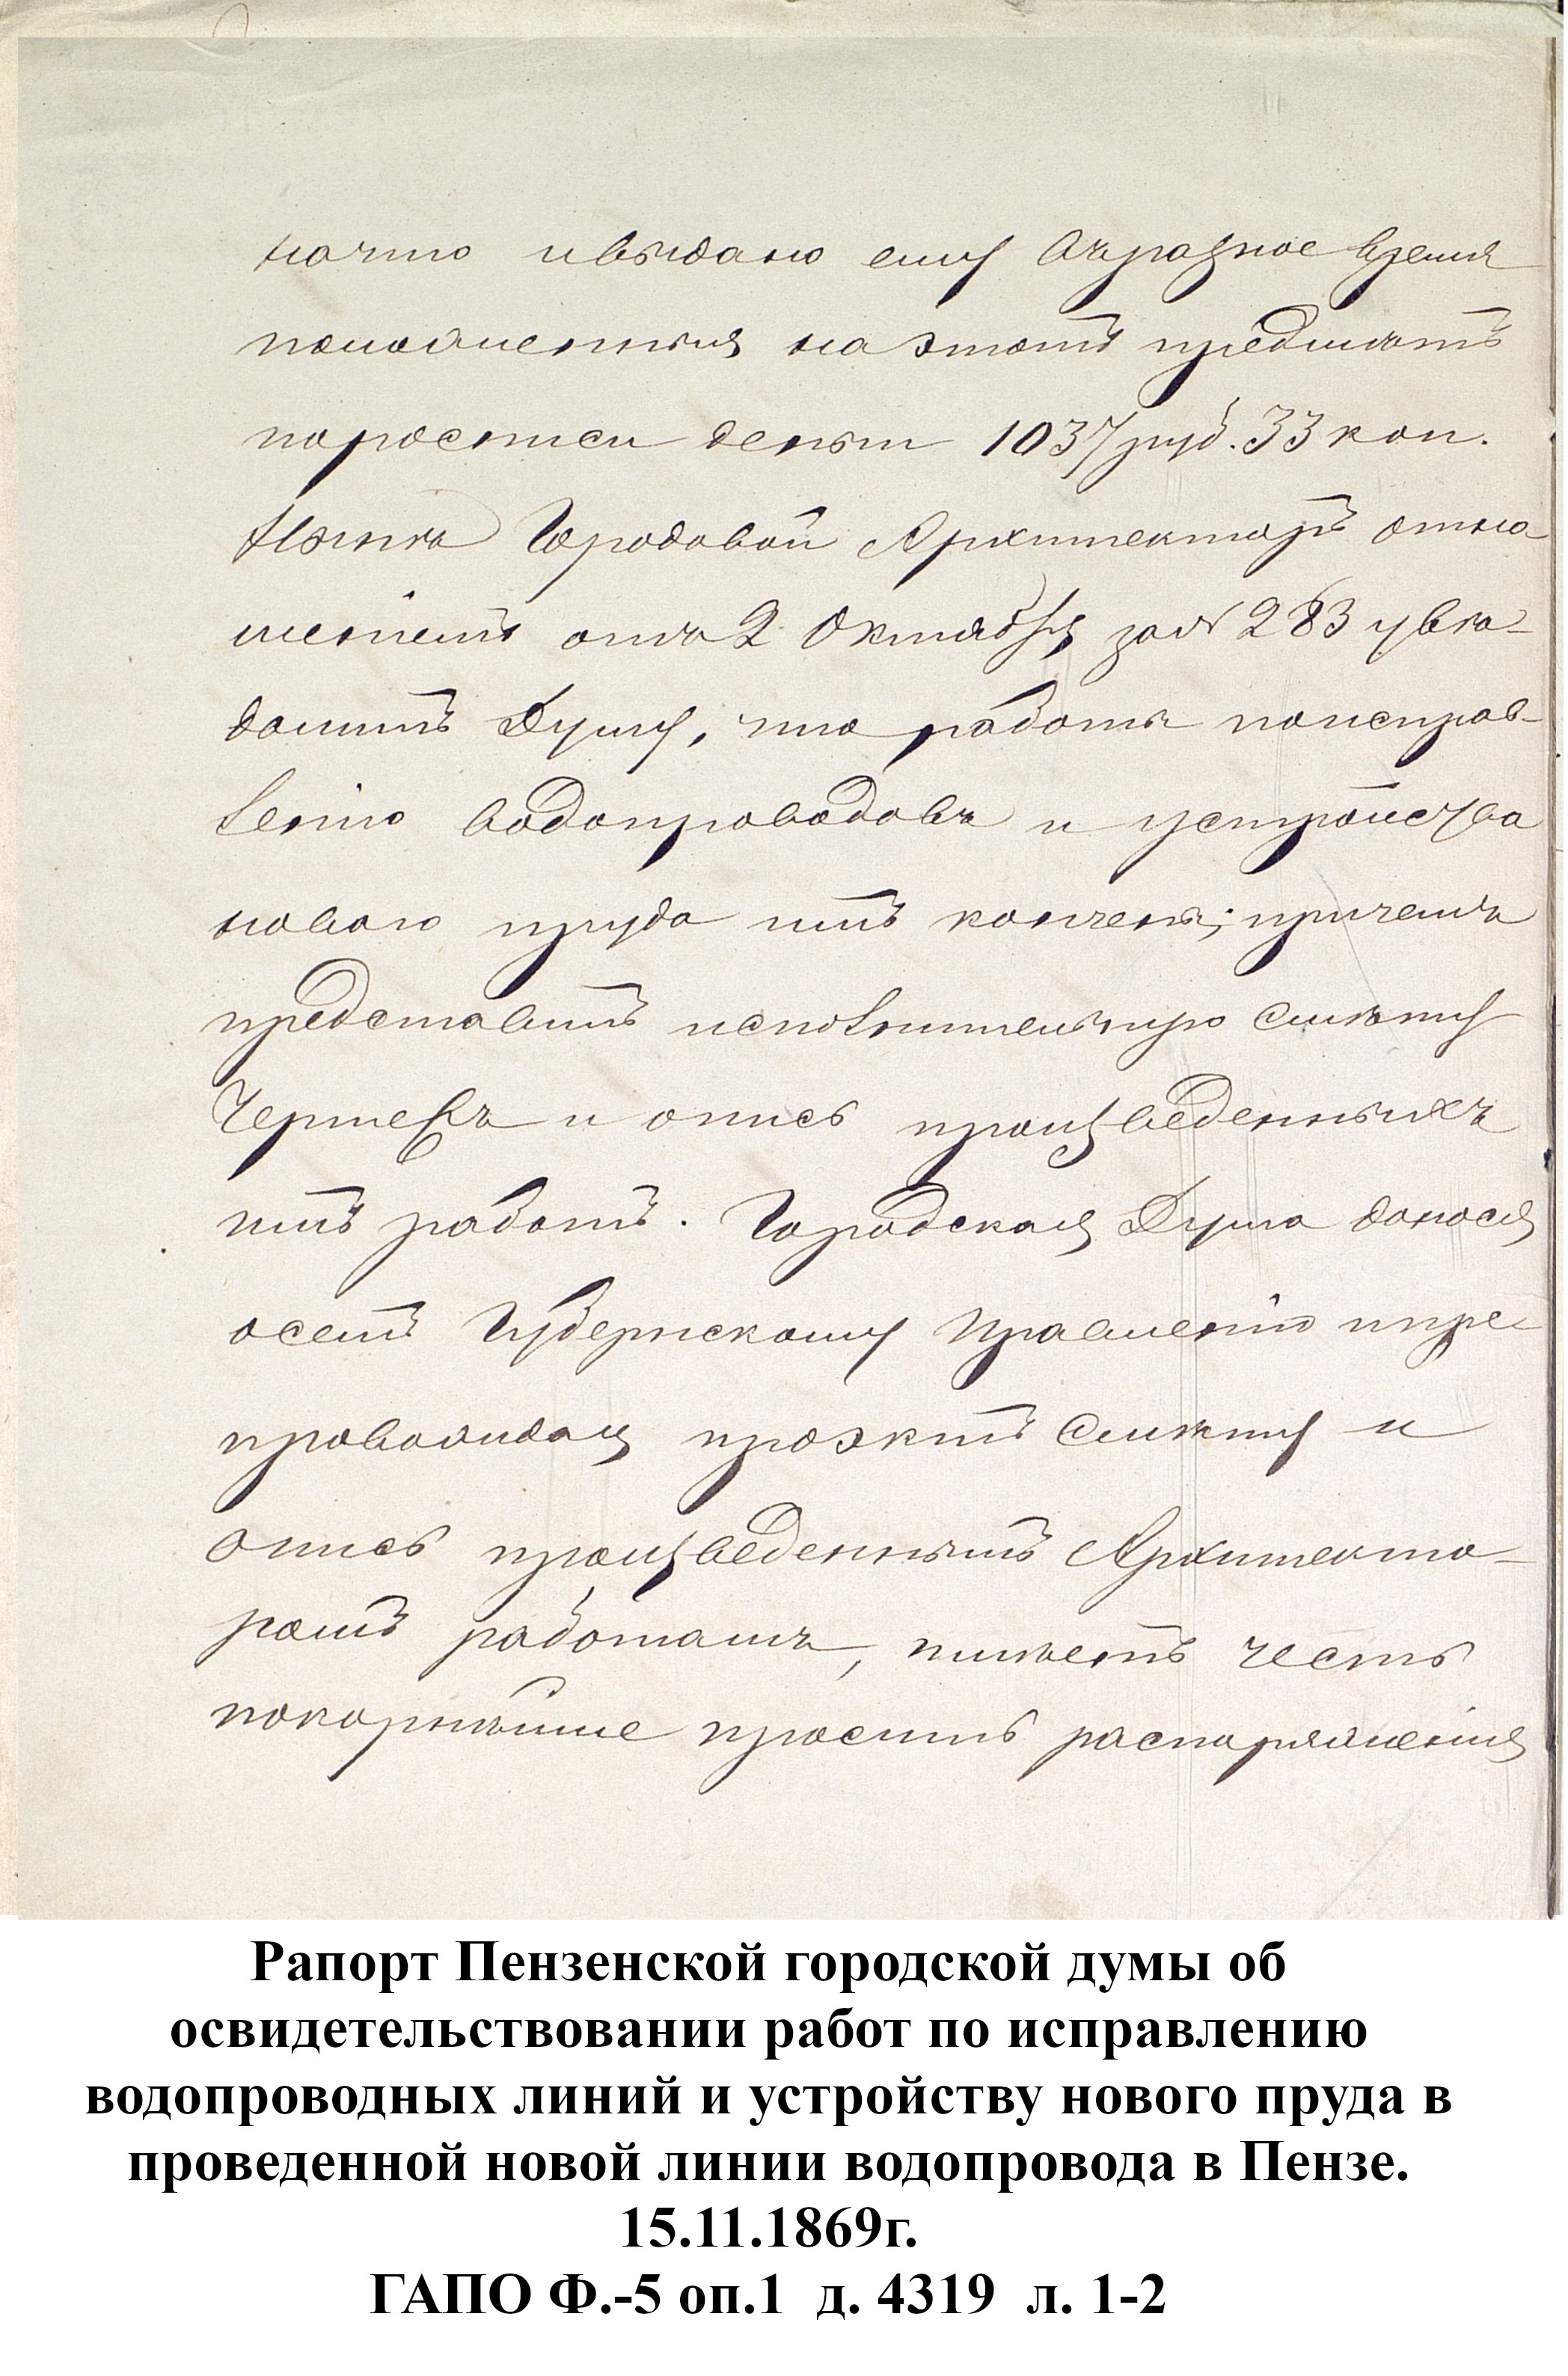 на что и выдано ему въ разное время
положенныя на этотъ предметъ
по росписи деньги 1037 руб. 33 коп.
Нынѣ Городовой Архитекторъ отно-
шеніемъ отъ 2 Октября за № 283 увѣ-
домилъ Думу, что работы по исправ-
ленію водопроводовъ и устройства
новаго пруда имъ кончены; причемъ
представилъ исполнительную смѣту
чертежъ и опись произведенныхъ
имъ работъ. Городская Дума донося
о семъ Губернскому Правленію и пре-
провождая проэктъ смѣту и
опись произведеннымъ Архитекто-
ромъ работамъ, имѣетъ честь
покорнѣйше просить распоряженія
Рапорт Пензенской городской думы об
освидетельствовании работ по исправлению
водопроводных линий и устройству нового пруда в
проведенной новой линии водопровода в Пензе.
15.11.1869г.
ГАПО Ф.-5 оп.1 д. 4319 л. 1-2